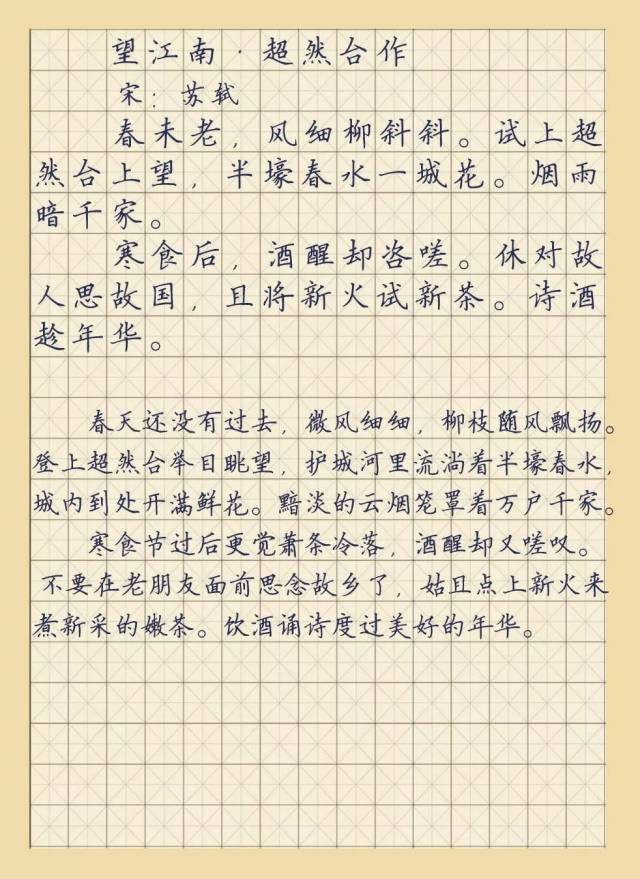 望江南·超然台作
宋：苏轼
春未老，风细柳斜斜。试上超
然台上望，半壕春水一城花。烟雨
暗千家。
寒食后，酒醒却咨嗟。休对故
人思故国，且将新火试新茶。诗酒
趁年华。
春天还没有过去，微风细细，柳枝随风飘扬。
登上超然台举目眺望，护城河里流淌着半壕春水，
城内到处开满鲜花。黯淡的云烟笼罩着万户千家。
寒食节过后更觉萧条冷落，酒醒却又嗟叹。
不要在老朋友面前思念故乡了，姑且点上新火来
煮新采的嫩茶。饮酒诵诗度过美好的年华。